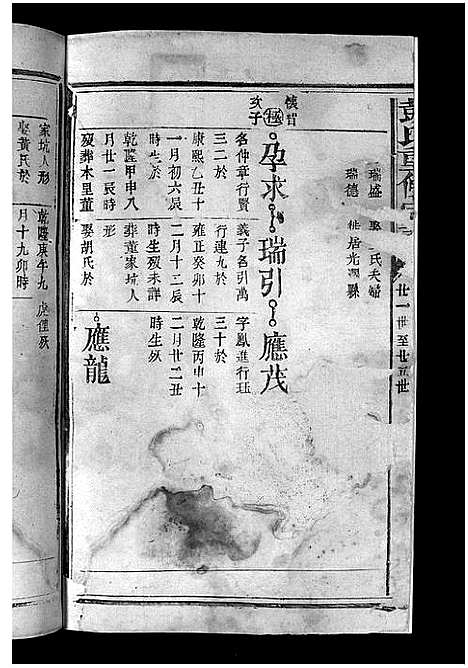 廿一世至廿五世
瑞盛
氏夫婦
瑞德
徙居光澤縣
次子
孕求
瑞引
應茂
名仲章行賢
三二於
康熙乙丑十
一月初六辰
時生於
乾隆甲申八
月廿一辰時
歿葬木里董
義子名引萬
行連九於
雍正癸卯十
二月十二辰
時生歿未詳
葬董家坑人
形
娶胡氏於
字鳳進行珏
三十於
乾隆丙申十
二月廿二丑
時生歿
應龍
家坑人形
娶黃氏於
乾隆庚午九
月十九卯時